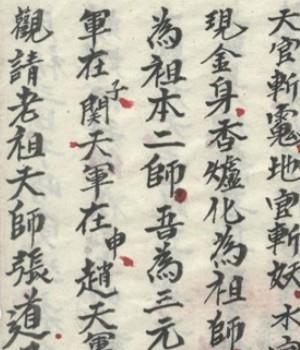 天官斬鬼地官斬妖水官
現金身香爐化為祖師
為祖本二師吾為三元
軍在子関天軍在申趙天軍
觀請老祖天師張道